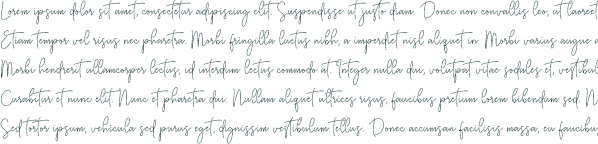 Lorem ipsum dolor sit amet, consectetur adipiscing elit. Suspendisse ut justo diam. Donec non convallis leo, ut laoreet
Etiam tempor vel risus nec pharetra. Morbi fringilla luctus nibh, a imperdiet nisl aliquet in. Morbi varius augue a
Morbi hendrerit ullamcorper lectus, id interdum lectus commodo at. Integer nulla dui, volutpat vitae sodales et, vestibul
Curabitur et nunc elit. Nunc et pharetra dui. Nullam aliquet ultrices risus, faucibus pretium lorem bibendum sed. N
Sed tortor ipsum, vehicula sed purus eget, dignissim vestibulum tellus. Donec accumsan facilisis massa, eu faucibu